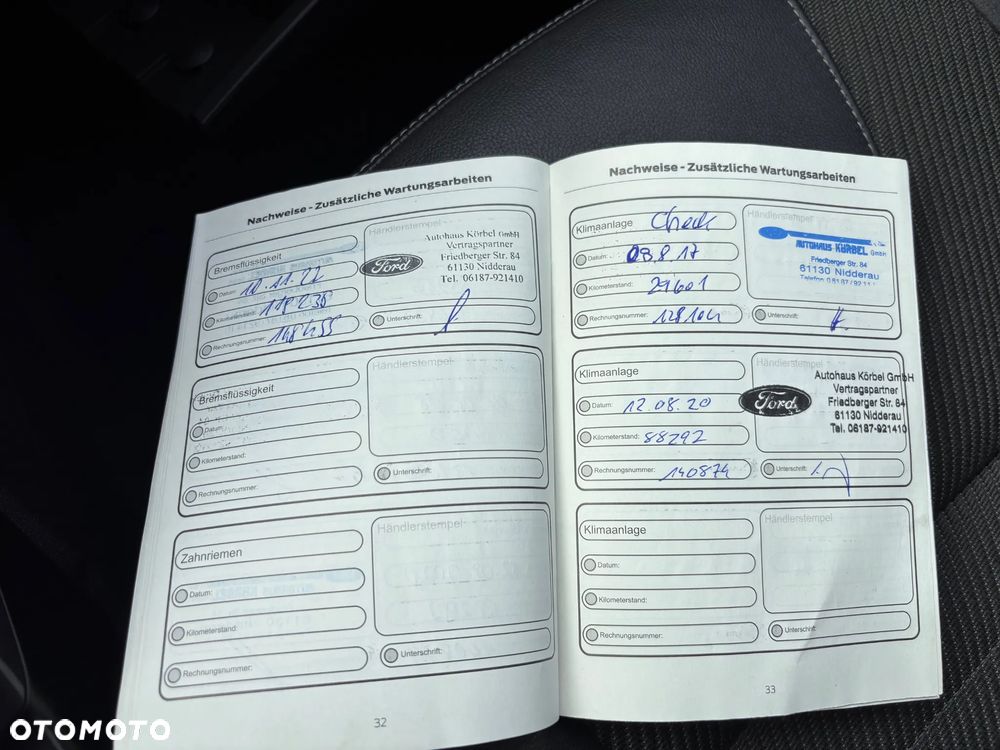 Nachweise - Zusätzliche Wartungsarbeiten
Bremsflüssigkeit
Datum: 10.11.22
Kilometerstand: 118236
Rechnungsnummer: 148455
Händlerstempel
Ford
Autohaus Körbel GmbH
Vertragspartner
Friedberger Str. 84
61130 Nidderau
Tel. 06187-921410
Unterschrift:
Bremsflüssigkeit
Datum:
Kilometerstand:
Rechnungsnummer:
Händlerstempel
Unterschrift:
Zahnriemen
Datum:
Kilometerstand:
Rechnungsnummer:
Händlerstempel
Unterschrift:
32
Nachweise - Zusätzliche Wartungsarbeiten
Klimaanlage Check
Datum: 03.8.17
Kilometerstand: 29601
Rechnungsnummer: 128104
Händlerstempel
AUTOHAUS KÖRBEL GmbH
Friedberger Str. 84
61130 Nidderau
Unterschrift:
Klimaanlage
Datum: 12.08.20
Kilometerstand: 88292
Rechnungsnummer: 140874
Händlerstempel
Ford
Autohaus Körbel GmbH
Vertragspartner
Friedberger Str. 84
61130 Nidderau
Tel. 06187-921410
Unterschrift:
Klimaanlage
Datum:
Kilometerstand:
Rechnungsnummer:
Händlerstempel
Unterschrift:
33
OTOMOTO